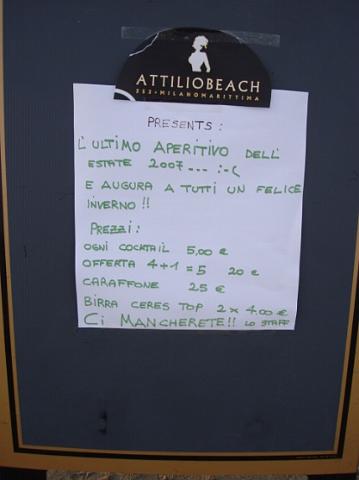 ATTILIOBEACH
253 • MILANOMARITTIMA
PRESENTS:
L'ULTIMO APERITIVO DELL'
ESTATE 2007.... :-(
E AUGURA A TUTTI UN FELICE
INVERNO!!
PREZZI:
OGNI COCKTAIL 5,00 €
OFFERTA 4+1=5 20 €
CARAFFONE 25 €
BIRRA CERES TOP 2 x 4.00 €
Ci MANCHERETE!! LO STAFF